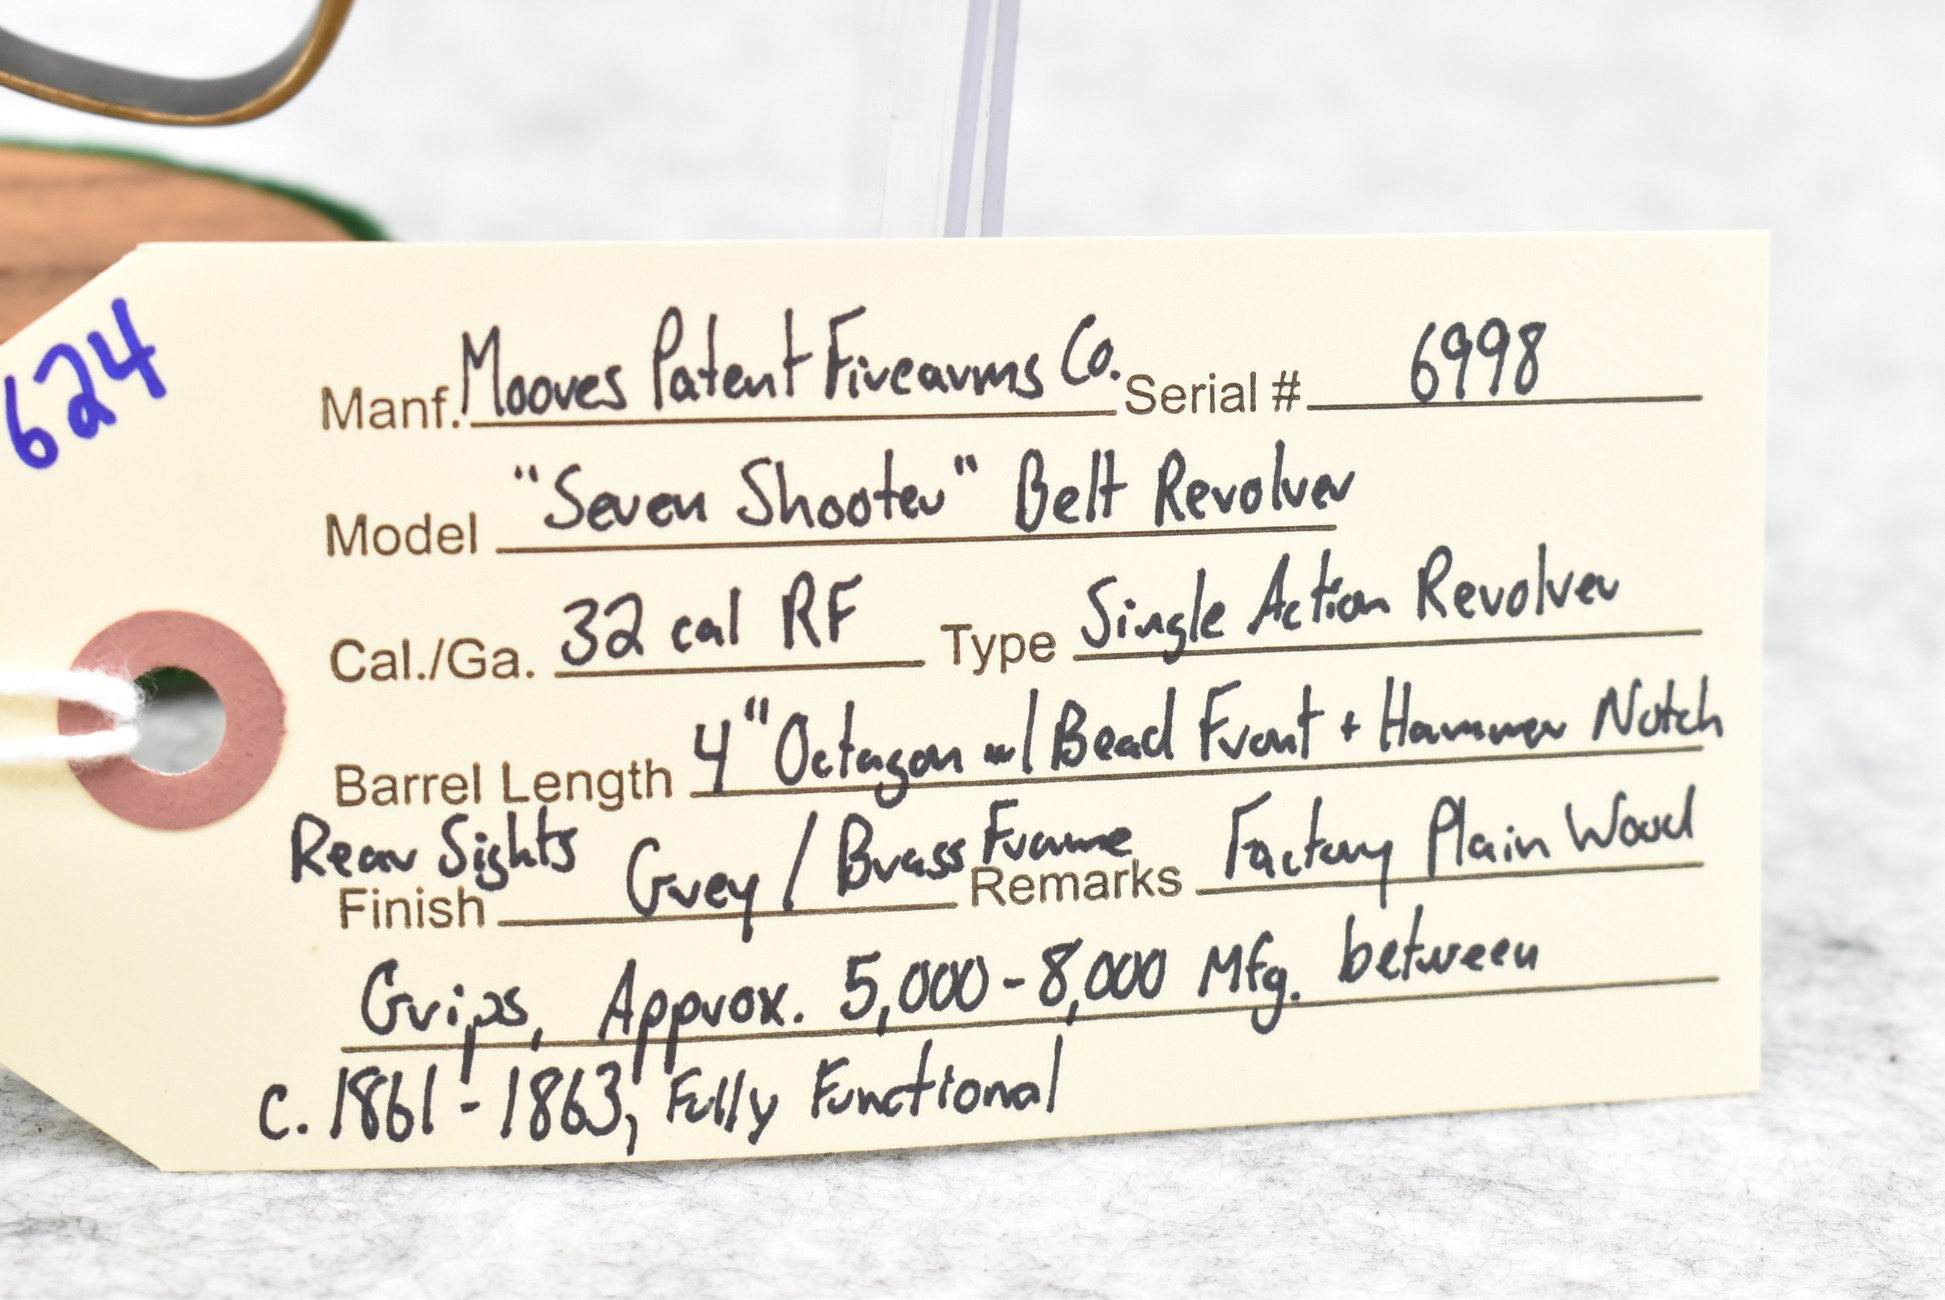 624
Manf. Moores Patent Firearms Co. Serial # 6998
Model "Seven Shooter" Belt Revolver
Cal./Ga. 32 cal RF Type Single Action Revolver
Barrel Length 4" Octagon w/ Bead Front + Hammer Notch
Rear Sights
Finish Grey / Brass Frame Remarks Factory Plain Wood
Grips, Approx. 5,000-8,000 Mfg. between
c. 1861-1863, Fully Functional